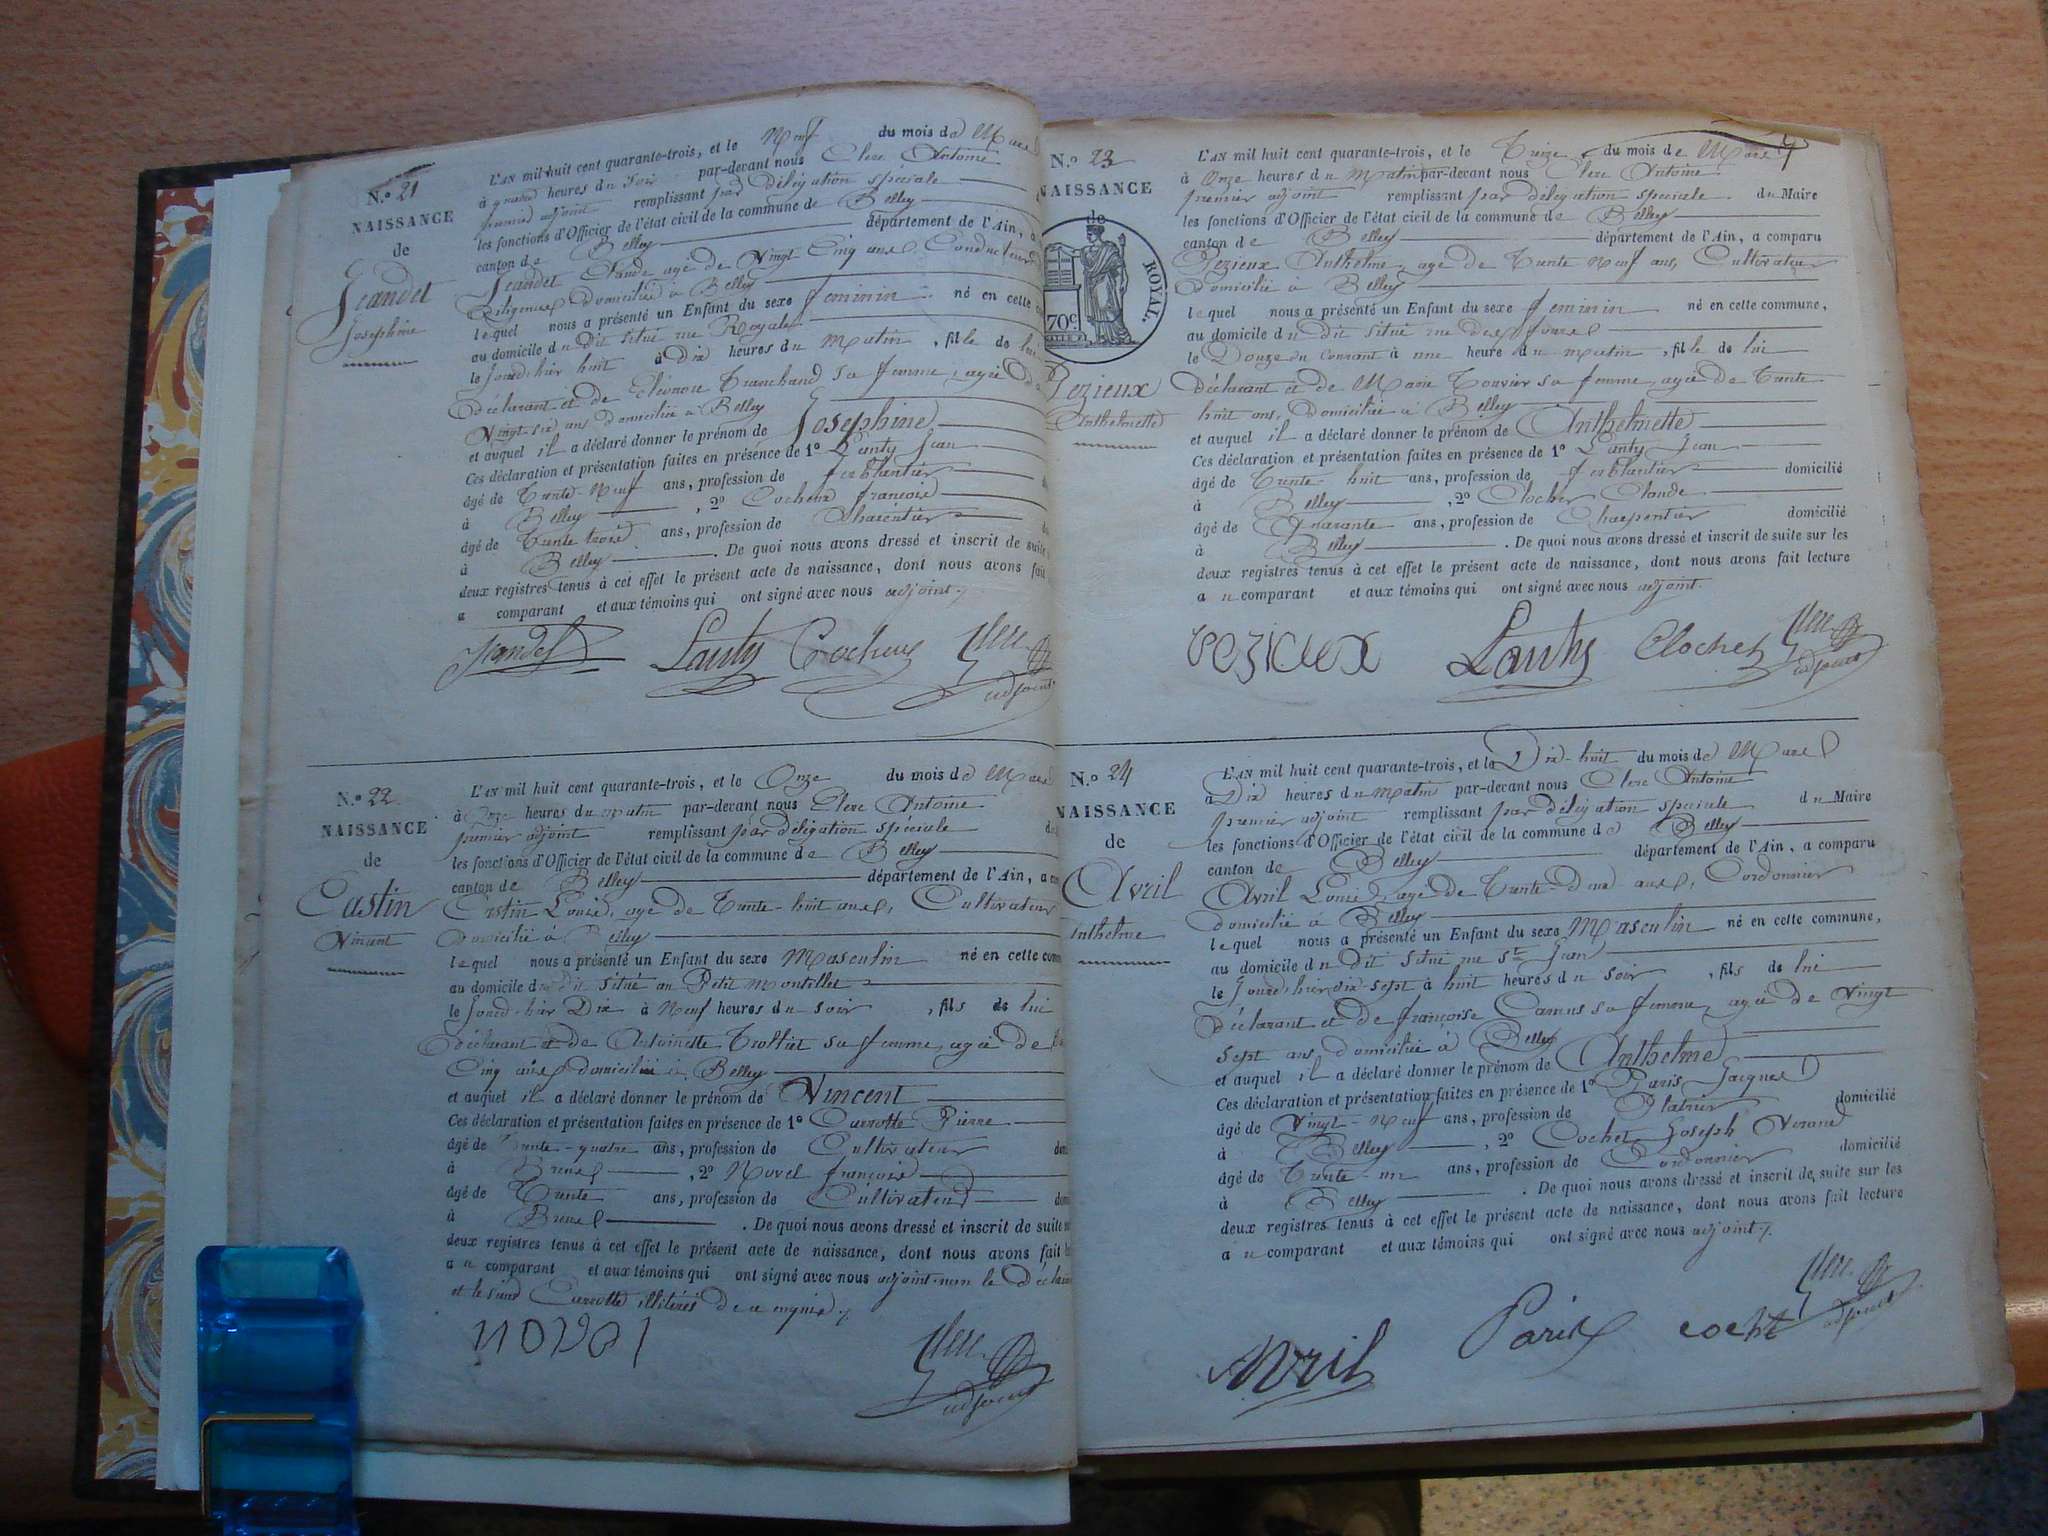 N.o 21
NAISSANCE
de
Jeandet
Josephine
L'AN mil huit cent quarante-trois, et le Neuf du mois de Mars
à quatre heures du soir par-devant nous Clerc Antoine
premier adjoint remplissant par délégation speciale
les fonctions d'Officier de l'état civil de la commune de Belley
canton de Belley département de l'Ain, a
Jeandet Claude agé de Vingt Cinq ans, Conducteur
Diligences domicilié à Belley
lequel nous a présenté un Enfant du sexe feminin né en cette
au domicile du dit situé rue Royale
le jourd-hier huit à Dix heures du matin, fille de lui
déclarant et de Eléonore Tranchand sa femme, agée de
Vingt-six ans domiciliée à Belley
et auquel il a déclaré donner le prénom de Josephine
Ces déclaration et présentation faites en présence de 1o Lanty Jean
âgé de Trente-Neuf ans, profession de ferblantier
à Belley, 2o Cocheux françois
âgé de Trente trois ans, profession de
à Belley. De quoi nous avons dressé et inscrit de suite
deux registres tenus à cet effet le présent acte de naissance, dont nous avons fait
au comparant et aux témoins qui ont signé avec nous adjoint./.
Jeandet Lanty Cocheux Clerc
adjoint
N.o 22
NAISSANCE
de
Castin
Vincent
L'AN mil huit cent quarante-trois, et le Onze du mois de Mars
à Onze heures du matin par-devant nous Clerc Antoine
premier adjoint remplissant par délégation spéciale
les fonctions d'Officier de l'état civil de la commune de Belley
canton de Belley département de l'Ain, a
Castin Louis, agé de Trente-huit ans, Cultivateur
domicilié à Belley
lequel nous a présenté un Enfant du sexe Masculin né en cette
au domicile du dit situé au Petit Montillet
le jourd-hier Dix à Neuf heures du soir, fils de lui
déclarant et de Antoinette Trollict sa femme, agée de
Cinq ans domiciliée à Belley
et auquel il a déclaré donner le prénom de Vincent
Ces déclaration et présentation faites en présence de 1o Currotte Pierre
âgé de Trente-quatre ans, profession de Cultivateur
à Brens, 2o Novel françois
âgé de Trente ans, profession de Cultivateur
à Brens. De quoi nous avons dressé et inscrit de suite
deux registres tenus à cet effet le présent acte de naissance, dont nous avons fait
au comparant et aux témoins qui ont signé avec nous adjoint non le
et le sieur Currotte illitérés de ce enquis./.
novel Clerc
adjoint
N.o 23
NAISSANCE
de
ROYAL.
70c.
Pezieux
Anthelmette
L'AN mil huit cent quarante-trois, et le Treize du mois de Mars
à Onze heures du Matin par-devant nous Clerc Antoine
premier adjoint remplissant par délégation speciale du Maire
les fonctions d'Officier de l'état civil de la commune de Belley
canton de Belley département de l'Ain, a comparu
Pezieux Anthelme, agé de Trente Neuf ans, Cultivateur
domicilié à Belley
lequel nous a présenté un Enfant du sexe feminin né en cette commune,
au domicile du dit situé rue des fours
le Douze du Courant à une heure du matin, fille de lui
déclarant et de Marie Trouvier sa femme, agée de Trente
huit ans, domiciliée à Belley
et auquel il a déclaré donner le prénom de Anthelmette
Ces déclaration et présentation faites en présence de 1o Lanty Jean
âgé de Trente-huit ans, profession de ferblantier domicilié
à Belley, 2o Clochet Claude
âgé de Quarante ans, profession de Charpentier domicilié
à Belley. De quoi nous avons dressé et inscrit de suite sur les
deux registres tenus à cet effet le présent acte de naissance, dont nous avons fait lecture
au comparant et aux témoins qui ont signé avec nous adjoint.
pezieux Lanty Clochet Clerc
adjoint
N.o 24
NAISSANCE
de
Avril
Anthelme
L'AN mil huit cent quarante-trois, et le Dix-huit du mois de Mars
à Dix heures du matin par-devant nous Clerc Antoine
premier adjoint remplissant par délégation speciale du Maire
les fonctions d'Officier de l'état civil de la commune de Belley
canton de Belley département de l'Ain, a comparu
Avril Louis, agé de Trente-deux ans, Cordonnier
domicilié à Belley
lequel nous a présenté un Enfant du sexe Masculin né en cette commune,
au domicile du dit situé rue St Jean
le jourd-hier dix-sept à huit heures du soir, fils de lui
déclarant et de françoise Camus sa femme, agée de Vingt
sept ans domiciliée à Belley
et auquel il a déclaré donner le prénom de Anthelme
Ces déclaration et présentation faites en présence de 1o Paris Jacques
âgé de Vingt-Neuf ans, profession de Platrier domicilié
à Belley, 2o Cochet Joseph
âgé de Trente-un ans, profession de Cordonnier domicilié
à Belley. De quoi nous avons dressé et inscrit de suite sur les
deux registres tenus à cet effet le présent acte de naissance, dont nous avons fait lecture
au comparant et aux témoins qui ont signé avec nous adjoint./.
Avril Paris cochet Clerc
adjoint